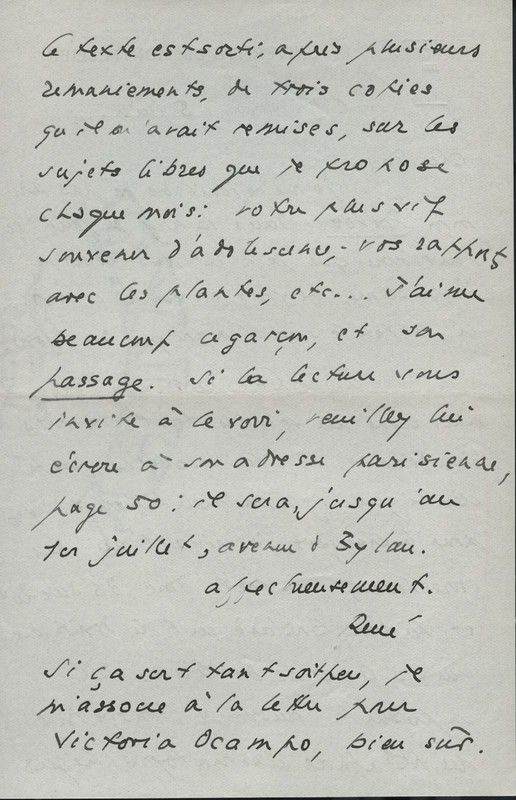 le texte est sorti, après plusieurs
remaniements, de trois copies
qu'il m'avait remises, sur les
sujets libres que je propose
chaque mois : votre plus vif
souvenir d'adolescence, - vos rapports
avec les plantes, etc... J'aime
beaucoup ce garçon, et son
passage. Si la lecture vous
invite à le voir, veuillez lui
écrire à son adresse parisienne,
page 50 : il sera, jusqu'au
1er juillet, avenue d'Eylau.
affectueusement.
René
Si ça sert tant soit peu, je
m'associe à la lettre pour
Victoria Ocampo, bien sûr.